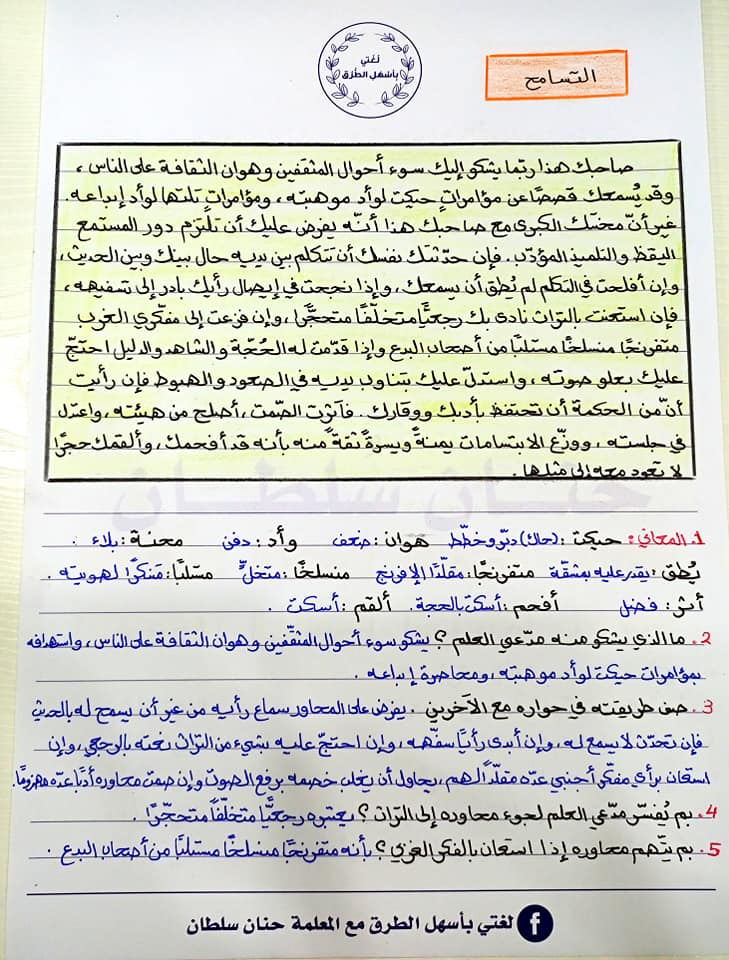 لغتي
بأسهل الطرق
التسامح
صاحبك هذا ربّما يشكو إليك سوء أحوال المثقفين وهوان الثقافة على الناس ،
وقد يُسمعك قصصًا عن مؤامراتٍ حيكت لوأد موهبته ، ومؤامراتٍ تلتها لوأد إبداعه.
غير أنّ محنتك الكبرى مع صاحبك هذا أنّه يفرض عليك أن تلتزم دور المستمع
اليقظ والتلميذ المؤدّب . فإن حدّثتك نفسك أن تتكلم بين يديه حال بينك وبين الحديث،
وإن أفلحت في التكلم لم يُطق أن يسمعك ، وإذا نجحت في إيصال رأيك بادر إلى تسفيهه ،
فإن استعنت بالتراث نادى بك رجعيًّا متخلّفًا متحجّرًا ، وإن فزعت إلى مفكّري الغرب
متفرنجًا منسلخًا مستلبًا من أصحاب البدع وإذا قدّمت له الحُجّة والشاهد والدليل احتجّ
عليك بعلو صوته ، واستدلّ عليك بتناوب يديه في الصعود والهبوط فإن رأيت
أنّ من الحكمة أن تحتفظ بأدبك ووقارك . فآثرت الصّمت ، أصلح من هيئته ، واعتدل
في جلسته ، ووزّع الابتسامات يمنةً ويسرةً ثقةً منه بأنه قد أفحمك ، وألقمك حجرًا
لا تعود معه إلى مثلها .
حنان سلطان
1. المعاني : حيكت : (حاك) دبّر وخطّط هوان : ضعف وأد : دفن محنة : بلاء .
يُطق : يقدر عليه بمشقّة متفرنجًا : مقلّدًا الإفرنج منسلخًا : متخلٍّ مستلبًا : متنكرًا لهويته .
آثر : فضل أفحم : أسكت بالحجة . ألقم : أسكت .
2. ما الذي يشكو منه مدّعي العلم ؟ يشكو سوء أحوال المثقّفين وهوان الثقافة على الناس ، واستهدافه
بمؤامرات حيكت لوأد موهبته ، ومحاصرة إبداعه .
3. صف طريقته في حواره مع الآخرين . يفرض على المحاور سماع رأيه من غير أن يسمح له بالحديث
فإن تحدّث لا يسمع له ، وإن أبدى رأيًا سفّهه ، وإن احتجّ عليه بشيء من التراث نعته بالرجعي ، وإن
استعان برأي مفكّر أجنبي عدّه مقلّدًا لهم ، يحاول أن يغلب خصمه برفع الصوت وإن صمت محاوره أدبًا عدّه مهزومًا.
4. بم يُفسّر مدّعي العلم لجوء محاوره إلى التراث ؟ يعتبره رجعيًّا متخلّفًا متحجّرًا .
5. بم يتّهم محاوره إذا استعان بالفكر الغربي ؟ بأنه متفرنجًا منسلخًا مستلبًا من أصحاب البدع .
لغتي بأسهل الطرق مع المعلمة حنان سلطان